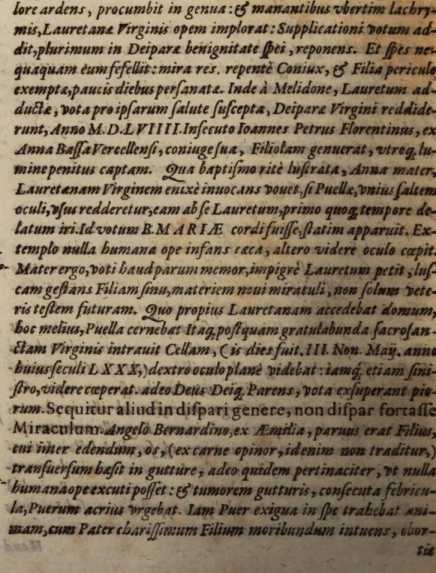 lore ardens, procumbit in genua: & manantibus vbertim lachry-
mis, Lauretanæ Virginis opem implorat: Supplicationi votum ad-
dit, plurimum in Deiparæ benignitate spei, reponens. Et spes ne-
quaquam eum fefellit: mira res. repentè Coniux, & Filia periculo
exemptæ, paucis diebus persanatæ. Inde à Melidone, Lauretum ad-
ductæ, vota pro ipsarum salute suscepta, Deiparæ Virgini reddide-
runt, Anno M.D.LVIIII. Insecuto Ioannes Petrus Florentinus, ex
Anna Bassa Vercellensi, coniuge sua, Filiolam genuerat, vtroq, lu-
mine penitus captam. Qua baptismo ritè lustrata, Anna mater,
Lauretanam Virginem enixè inuocans vouet, si Puellæ, vnius saltem
oculi, vsus redderetur, eam ab se Lauretum, primo quoq, tempore de-
latum iri. Id votum B. MARIÆ cordi fuisse, statim apparuit. Ex-
templo nulla humana ope infans cæca, altero videre oculo cœpit.
Mater ergo, voti haud parum memor, impigrè Lauretum petit, lus-
cam gestans Filiam sinu, materiem noui miratuli, non solum vete-
ris testem futuram. Quo propius Lauretanam accedebat domum,
hoc melius, Puella cernebat Itaq, postquam gratulabunda sacrosan-
ctam Virginis intrauit Cellam, (is dies fuit. III. Non. Maij. anno
huius seculi LXXX,) dextro oculo planè videbat: iamq, etiam sini-
stro, videre cœperat. adeo Deus Deiq, Parens, vota exsuperant pio-
rum. Sequitur aliud in dispari genere, non dispar fortasse
Miraculum. Angelo Bernardino, ex Æmilia, paruus erat Filius,
cui inter edendum, os, (ex carne opinor, id enim non traditur,)
transuersum hæsit in gutture, adeo quidem pertinaciter, vt nulla
humana ope excuti posset: & tumorem gutturis, consecuta febricu-
la, Puerum acrius vrgebat. Iam Puer exigua in spe trahebat ani-
mam, cum Pater charissimum Filium moribundum intuens, obor-
tis